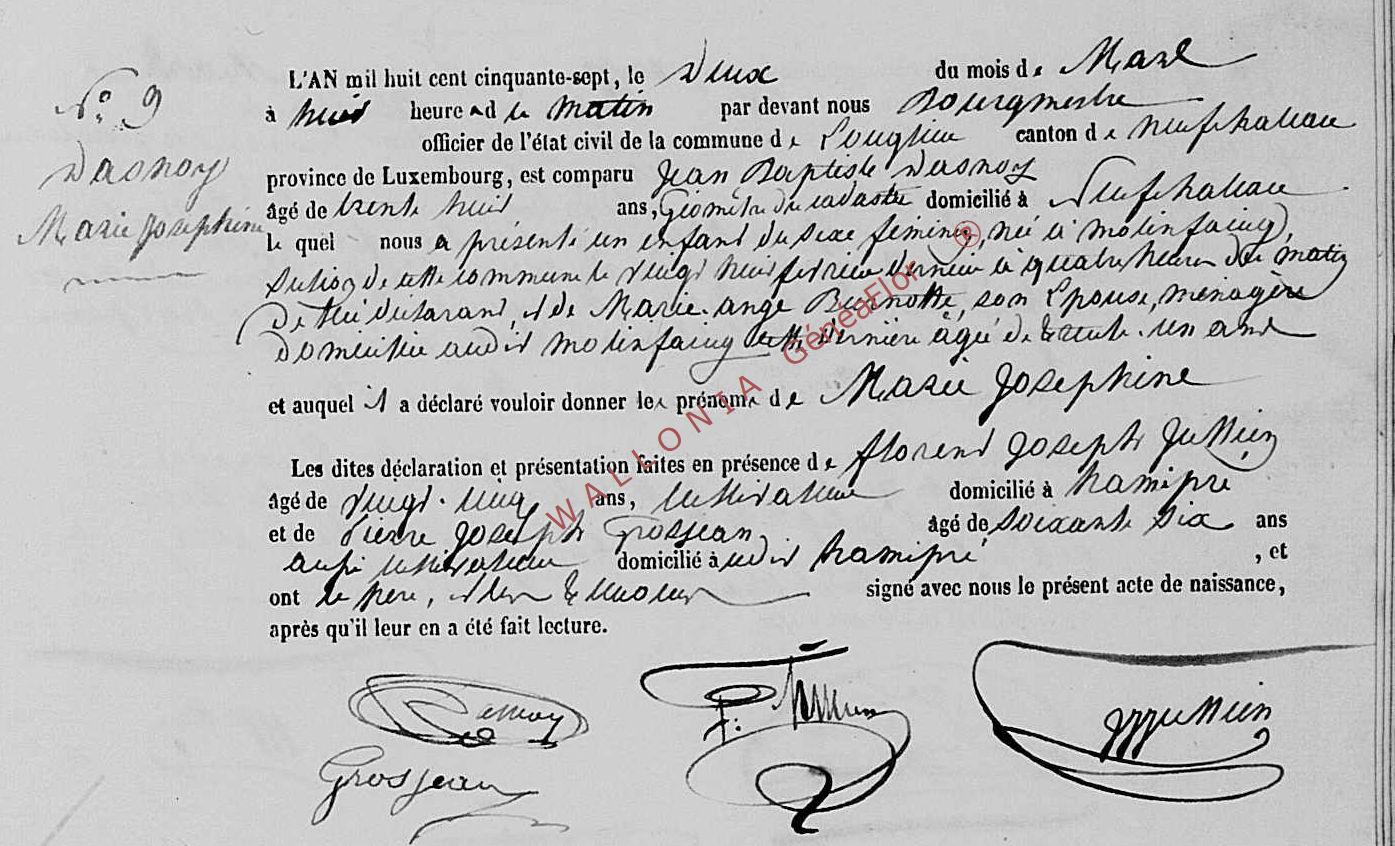 L'AN mil huit cent cinquante-sept, le Deux du mois de Mars
N° 9
à huit heures du matin par devant nous Bourgmestre
officier de l'état civil de la commune de Longlier canton de Neufchateau
Dasnoy
province de Luxembourg, est comparu Jean Baptiste Dasnoy
âgé de trente huit ans, Géomètre du cadastre domicilié à Neufchateau
Marie Josephine
lequel nous a présenté un enfant du sexe féminin, née à molinfaing,
section de cette commune le vingt huit fevrier dernier à quatre heures du matin
de lui déclarant, et de Marie-ange Burnotte, son Epouse, ménagère
domiciliée audit molinfaing cette dernière agée de trente-un ans
et auquel il a déclaré vouloir donner les prénoms de Marie Josephine
Les dites déclaration et présentation faites en présence de florent Joseph Jullien
âgé de vingt-cinq ans, cultivateur domicilié à hamipré
et de Pierre Joseph Grosjean âgé de soixante six ans
aussi cultivateur domicilié à udit hamipré, et
ont le père, et les témoins signé avec nous le présent acte de naissance,
après qu'il leur en a été fait lecture.
Dasnoy
Jullien
Grosjean
WALLONIA GénéaFlor ®